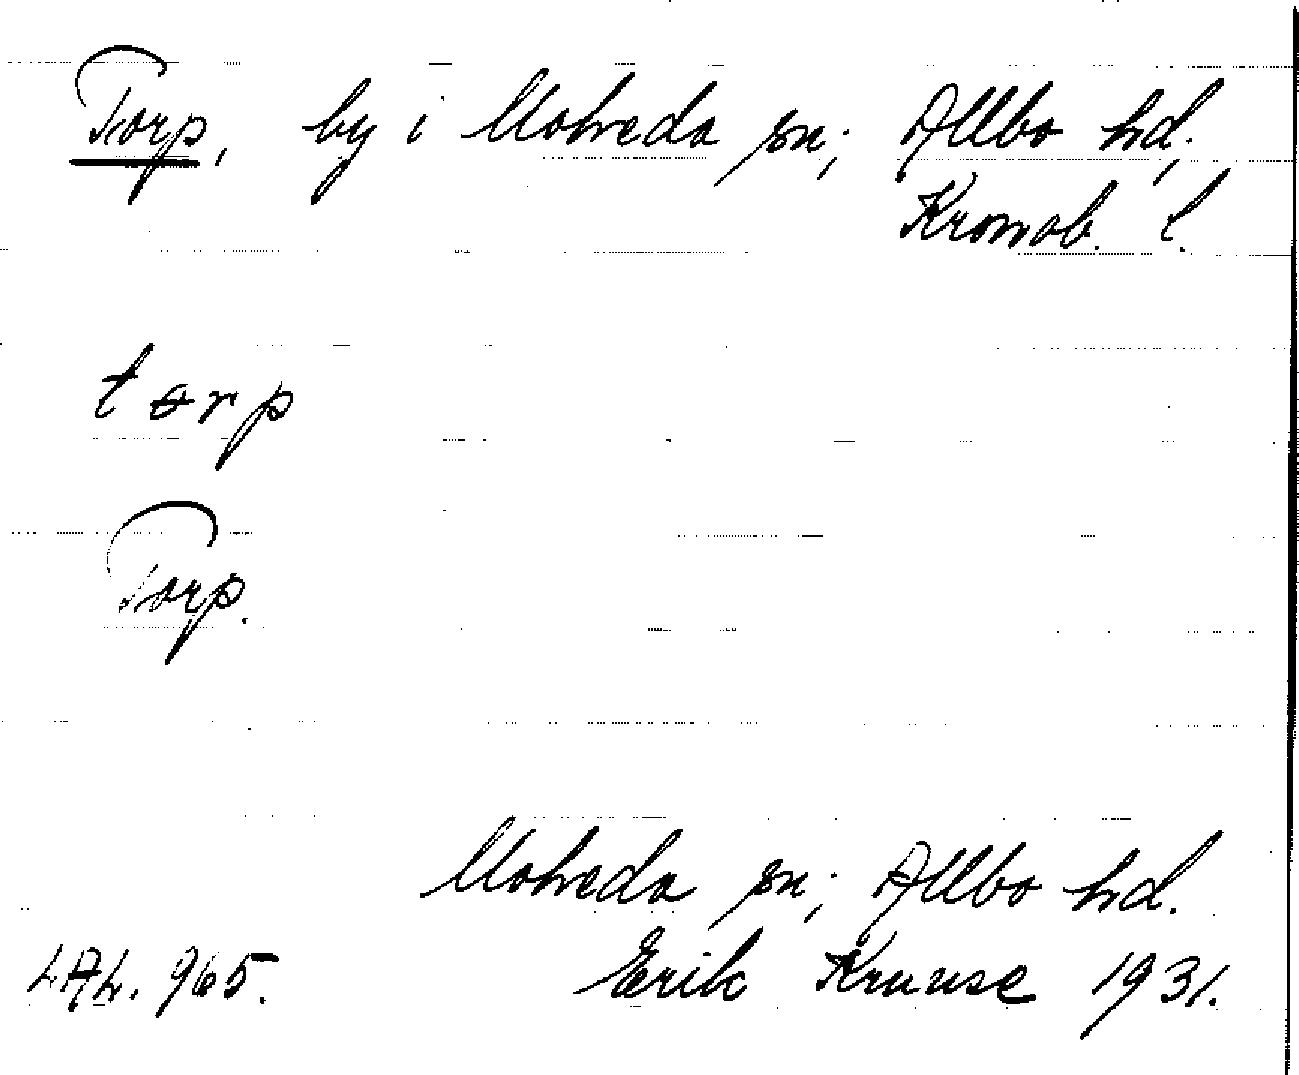 Torp, by i Moheda sn; Allbo hd,
Kronob. l.
torp
Torp.
Moheda sn; Allbo hd.
LAL. 965. Erik Kruuse 1931.